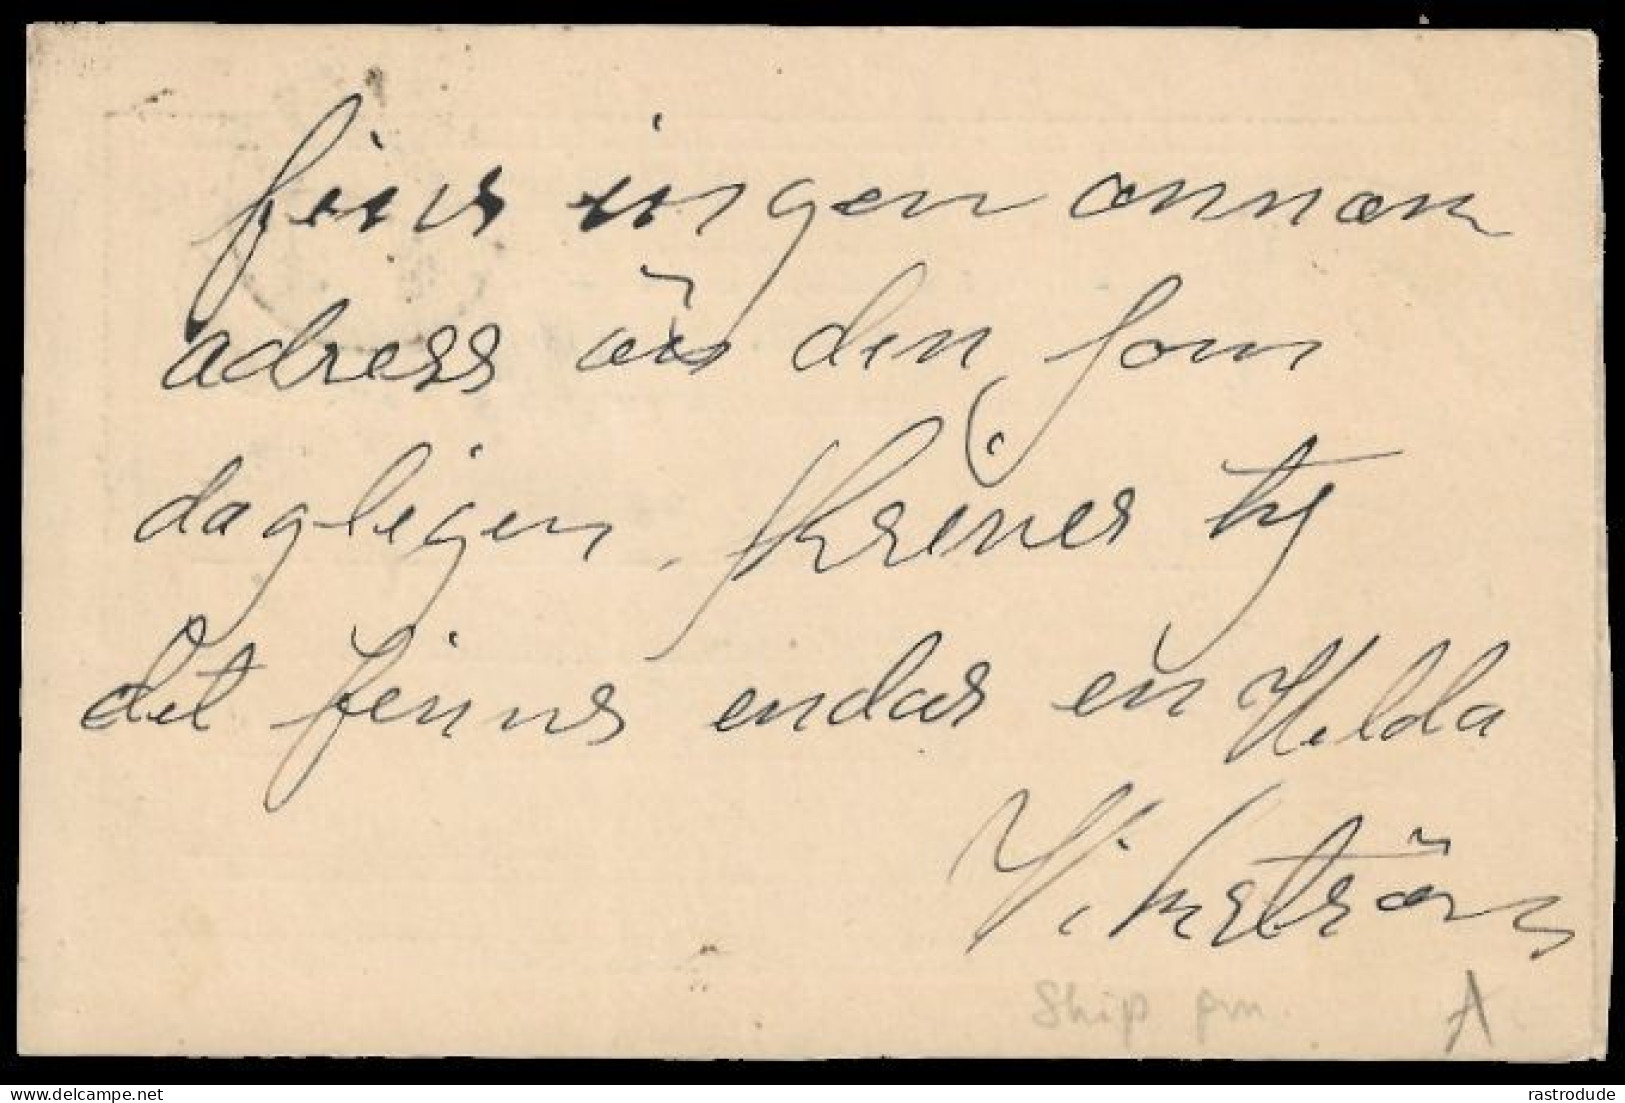 fins ingen annan
adress än den som
dagligen. skrives ty
det finns endas en Hilda
Vikström
Ship pm.
A
rastrodude